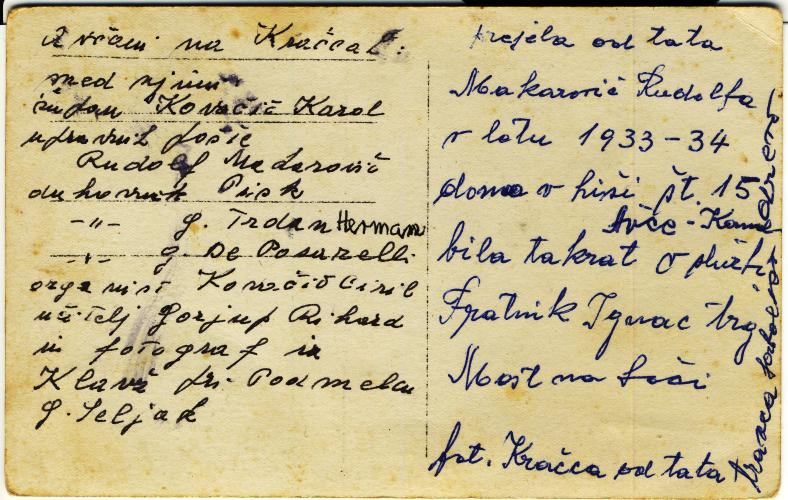 Avčani na Kračcah:
med njimi
župan Kovačič Karol
upravnik pošte
Rudolf Makarovič
duhovnik Pisk
-"- g. Trdan Herman
-"- g. De Posarelli
organist Kovačič Ciril
učitelj Gorjup Rihard
in fotograf iz
Klavž pri Podmelcu
g. Seljak
prejela od tata
Makarovič Rudolfa
v letu 1933-34
doma v hiši št. 15
Avče-Kanal
bila takrat v službi
Fratnik Ignac trg
Most na Soči
fot. Kračca od tata